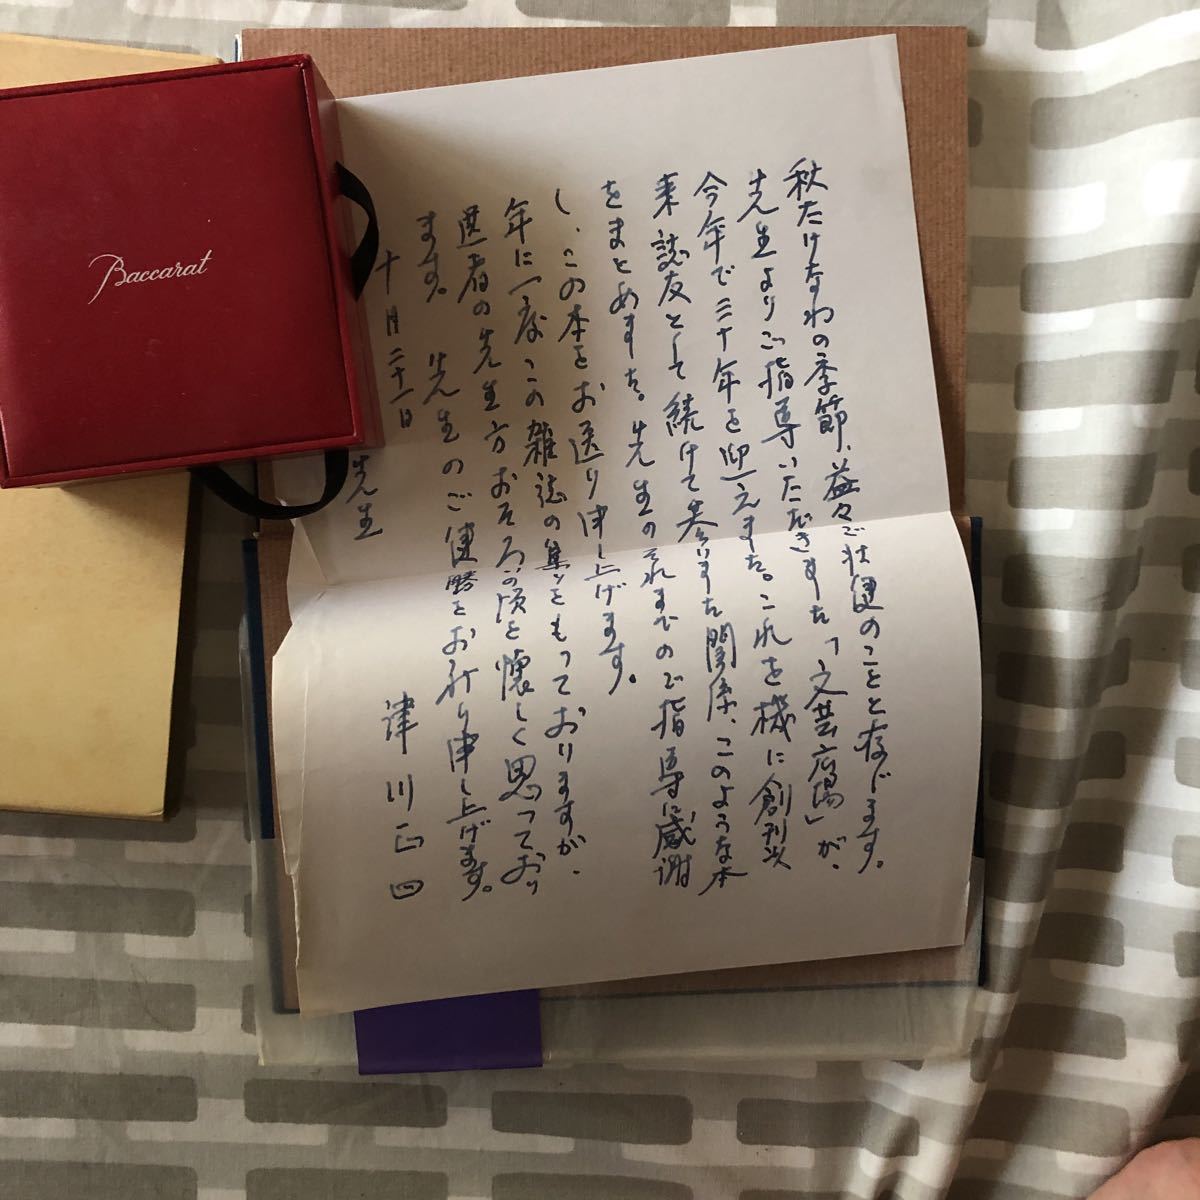 Baccarat
秋たけなわの季節、益々ご壮健のことと存じます。
先生よりご指導いただきました「文芸広場」が、
今年で三十年を迎えました。これを機に創刊以
来誌友として続けて参りました関係、このような本
をまとめました。先生のそれまでのご指導に感謝
し、この本をお送り申し上げます。
年に一度この雑誌の集をもっておりますが、
選者の先生方おそろいの頃を懐しく思っており
ます。先生のご健勝をお祈り申し上げます。
十月二十一日
津川正四
先生